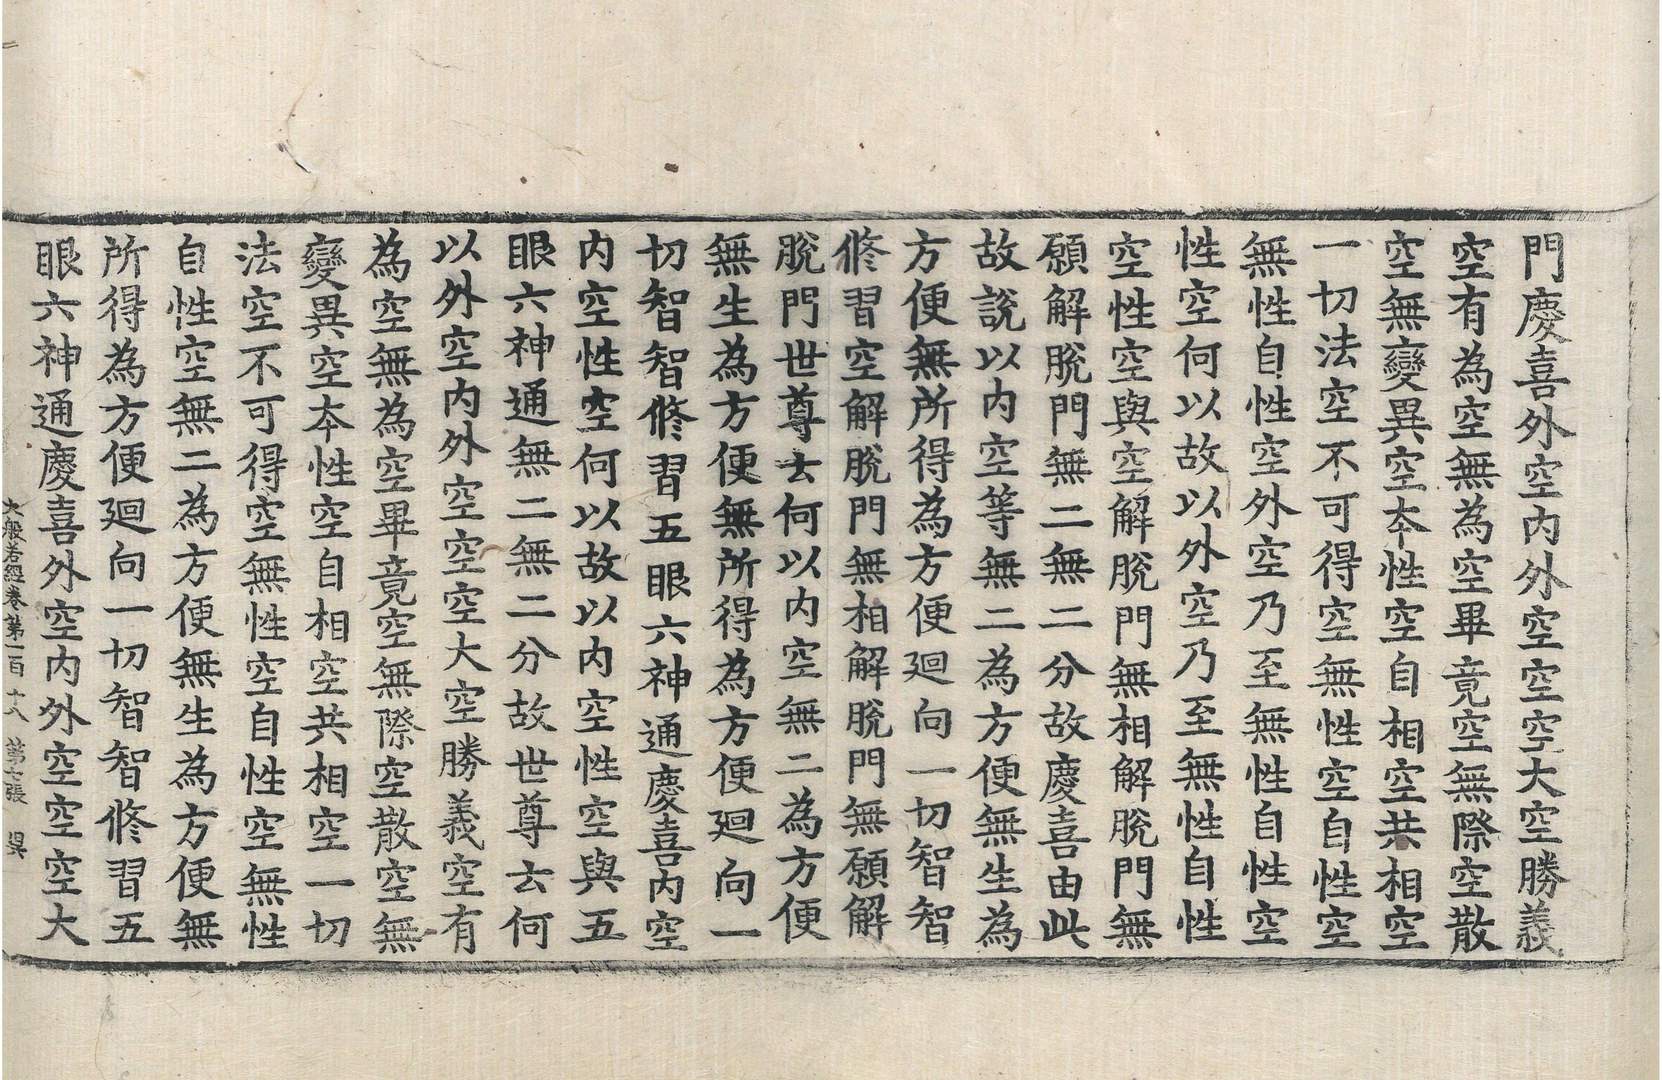 門慶喜外空內外空空空大空勝義
空有為空無為空畢竟空無際空散
空無變異空本性空自相空共相空
一切法空不可得空無性空自性空
無性自性空外空乃至無性自性空
性空何以故以外空乃至無性自性
空性空與空解脫門無相解脫門無
願解脫門無二無二分故慶喜由此
故說以內空等無二為方便無生為
方便無所得為方便迴向一切智智
修習空解脫門無相解脫門無願解
脫門世尊云何以內空無二為方便
無生為方便無所得為方便迴向一
切智智修習五眼六神通慶喜內空
內空性空何以故以內空性空與五
眼六神通無二無二分故世尊云何
以外空內外空空空大空勝義空有
為空無為空畢竟空無際空散空無
變異空本性空自相空共相空一切
法空不可得空無性空自性空無性
自性空無二為方便無生為方便無
所得為方便迴向一切智智修習五
眼六神通慶喜外空內外空空空大
大般若經卷第一百十八 第七張